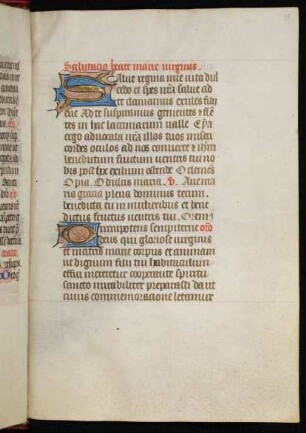 Salutacio beate marie virginis.
Salue regina mie vita dul
cedo et spes nra salue ad
te clamamus exules filii
eue Ad te suspiramus gementes et flen
tes in hac lacrimarum valle Eya
ergo aduocata nra illos tuos miseri
cordes oculos ad nos conuerte Et ihm
benedictum fructum ventris tui no
bis post hoc exilium ostende O clemens
O pia O dulcis maria. V. Aue ma
ria gracia plena dominus tecum.
benedicta tu in mulieribus et bene
dictus fructus ventris tui Orem9
Omnipotens sempiterne oro
deus qui gloriose virginis
et matris marie corpus et animam
ut dignum filii tui habitaculum
effici mereretur cooperante spiritu
sancto mirabiliter preparasti da ut
cuius commemoracione letamur